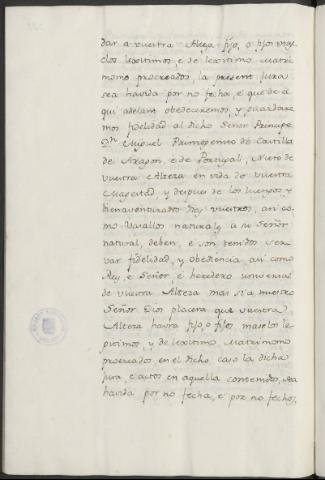 dar a vuestra Alteza fijo, o fijos varo
clos lexitimos, é de lexitimo Matri
monio procreados, la present Jura
sea havida por no fecha, é que de a
qui adelant obedeceremos, y guardare
mos fidelidad al dicho Señor Principe
Dn Miguel Primogenito de Castilla
de Aragon, é de Portugal, Nieto de
vuestra Alteza en vida de vuestra
Magestad, y despues de los luengos y
bienaventurados dias vuestros, asi co
mo Vasallos naturales a su Señor
natural, deben, é son tenidos ser
var fidelidad, y obediencia, asi como
Rey, é Señor, é heredero universal
de vuestra Alteza mas si a nuestro
Señor Dios placera que vuestra
Alteza havra fijo, o fijos, masclos le
gitimos, y de lexitimo Matrimonio
procreados, en el dicho caso la dicha
jura, é actos en aquella contenidos, sea
havida por no fecha, é por no fechos,